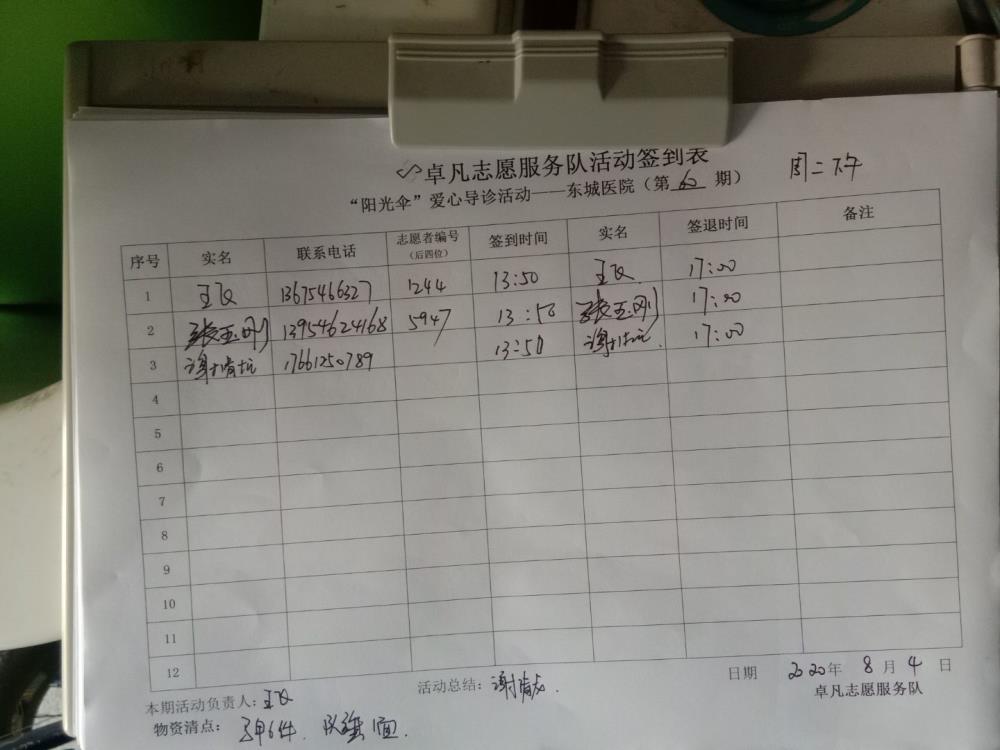 卓凡志愿服务队活动签到表
周二下午
“阳光伞”爱心导诊活动——东城医院（第 60 期）
序号 实名 联系电话 志愿者编号（后四位） 签到时间 实名 签退时间 备注
1 王飞 13675466327 1244 13:50 王飞 17:00
2 张玉刚 13954624168 5947 13:50 张玉刚 17:00
3 谢 17661250789 13:50 谢 17:00
4
5
6
7
8
9
10
11
12
日期 2020年 8月 4日
本期活动负责人：王飞 活动总结：谢
卓凡志愿服务队
物资清点： 马甲6件、队旗1面.